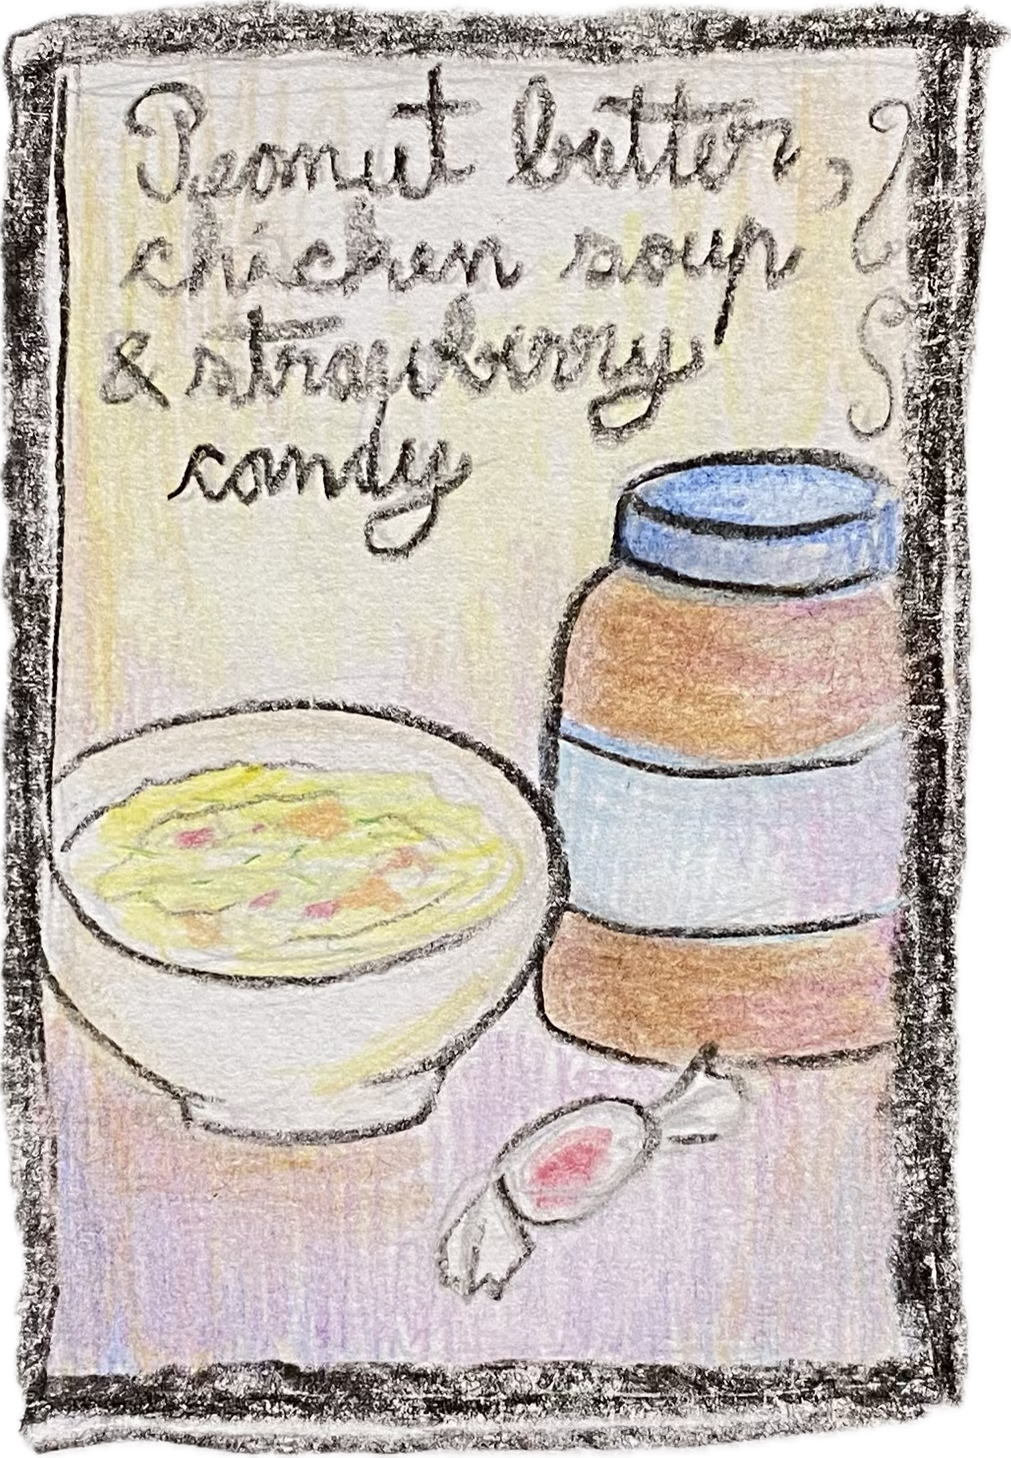 Peanut butter,
chicken soup
& strawberry
candy